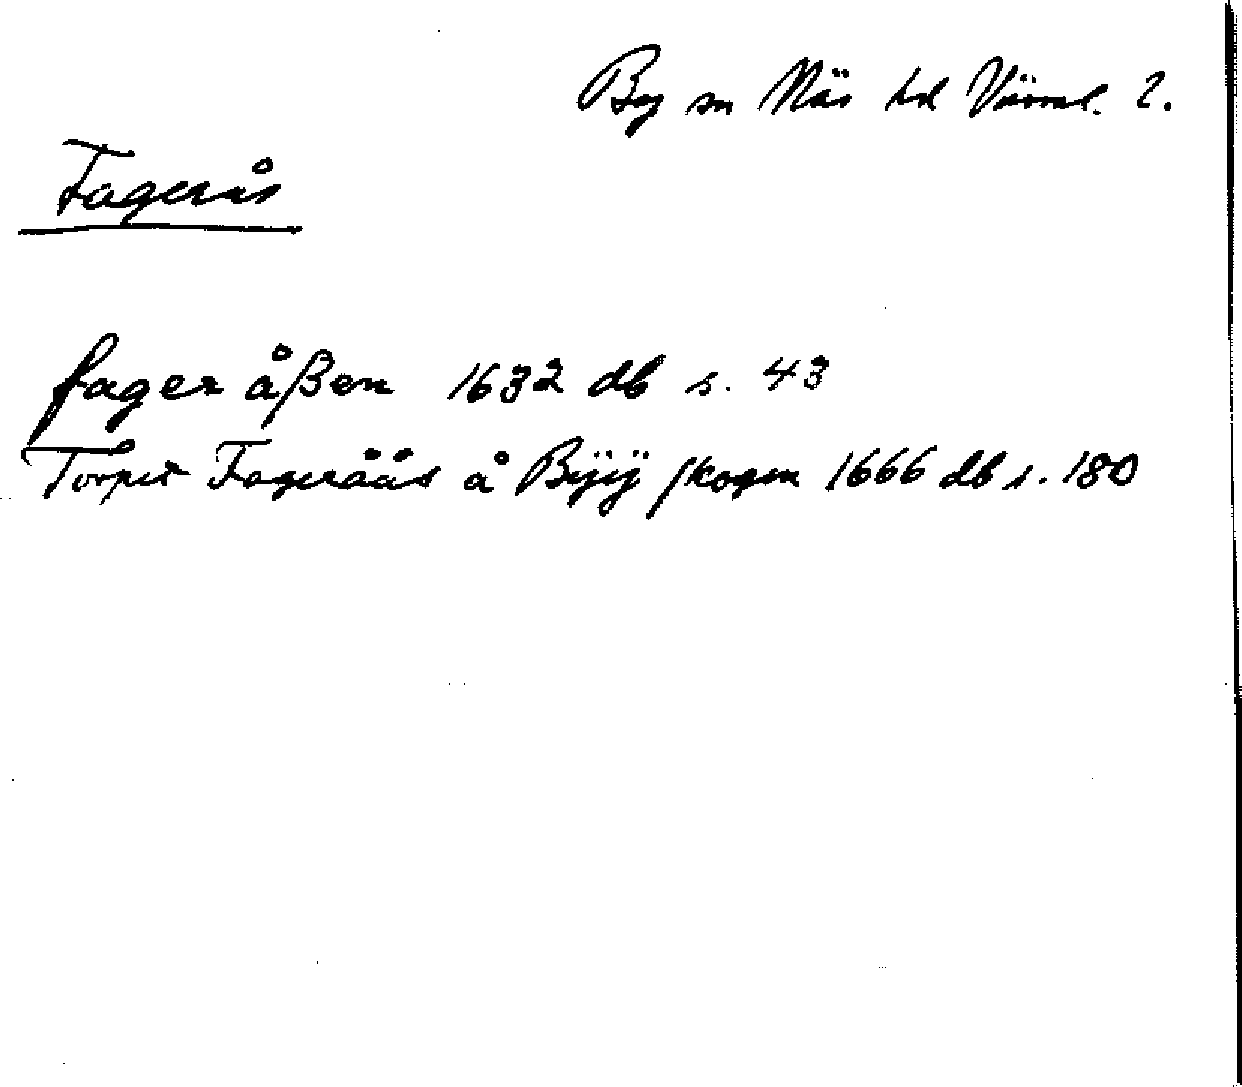 By sn Näs hd Värml. l.
Fagerås
fager åßen 1632 db s. 43
Torpet Fageråås å Bÿÿ skogen 1666 db s. 180